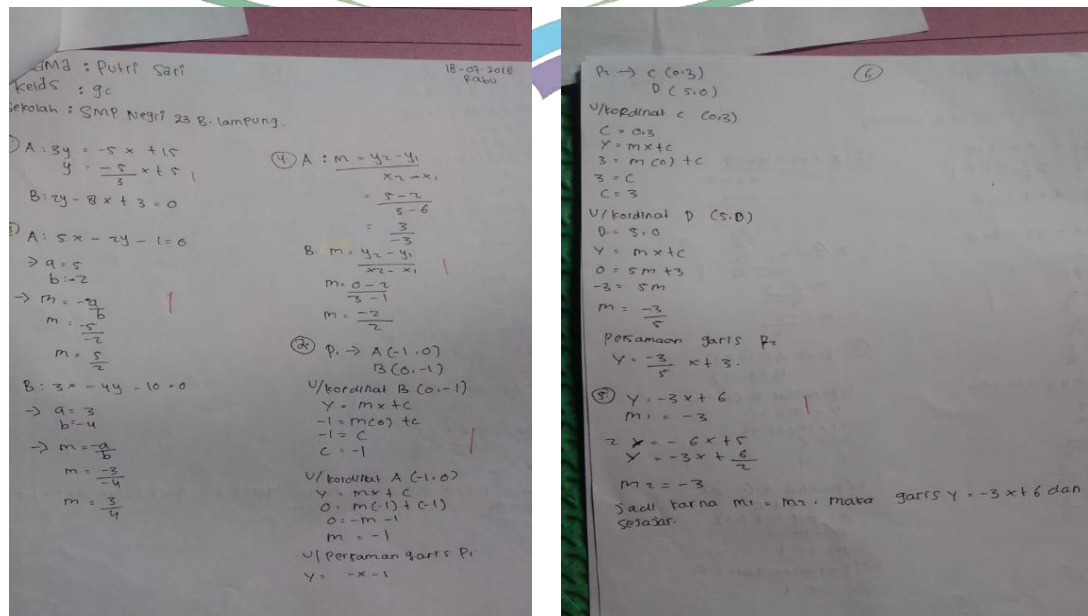 Nama : Putri Sari
kelas : 9c
Sekolah : SMP Negri 23 B. lampung.
18-07-2018
Rabu
A : 3y = -5x + 15
y = -5/3 x + 5
B : 2y - 8x + 3 = 0
A : 5x - 2y - 1 = 0
> a = 5
b : -2
-> m = -a/b
m = -5/-2
m = 5/2
B : 3x - 4y - 10 = 0
-> a = 3
b = -4
-> m = -a/b
m = -3/-4
m = 3/4
4 A : m = y2 - y1 / x2 - x1
= 5 - 2 / 3 - 6
= 3/-3
B. m = y2 - y1 / x2 - x1
m = 0 - 2 / 3 - 1
m = -2/2
2 P1 -> A (-1.0)
B (0.-1)
U/kordinat B (0.-1)
y = mx + c
-1 = m(0) + c
-1 = c
c = -1
U/kordinat A (-1.0)
y = mx + c
0 = m(-1) + (-1)
0 = -m - 1
m = -1
U/persaman garis P1
y = -x - 1
P2 -> C (0.3)
D (5.0)
6
U/kordinat C (0.3)
C = 0.3
Y = mx + c
3 = m(0) + c
3 = c
c = 3
U/kordinat D (5.0)
D = 5.0
Y = mx + c
0 = 5m + 3
-3 = 5m
m = -3/5
Persamaan garis P2
Y = -3/5 x + 3.
5 Y = -3x + 6
m1 = -3
2 y = -6x + 5
y = -3x + 6/2
m2 = -3
jadi karna m1 = m2, maka garis y = -3x + 6 dan
sejajar.